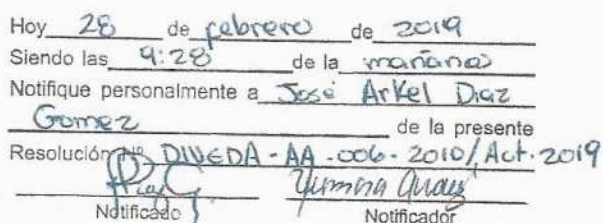 Hoy 28 de febrero de 2019
Siendo las 9:28 de la mañana
Notifique personalmente a José Arkel Diaz
Gomez de la presente
Resolución Nº DIVEDA-AA-006-2010/Act-2019
Notificado Notificador